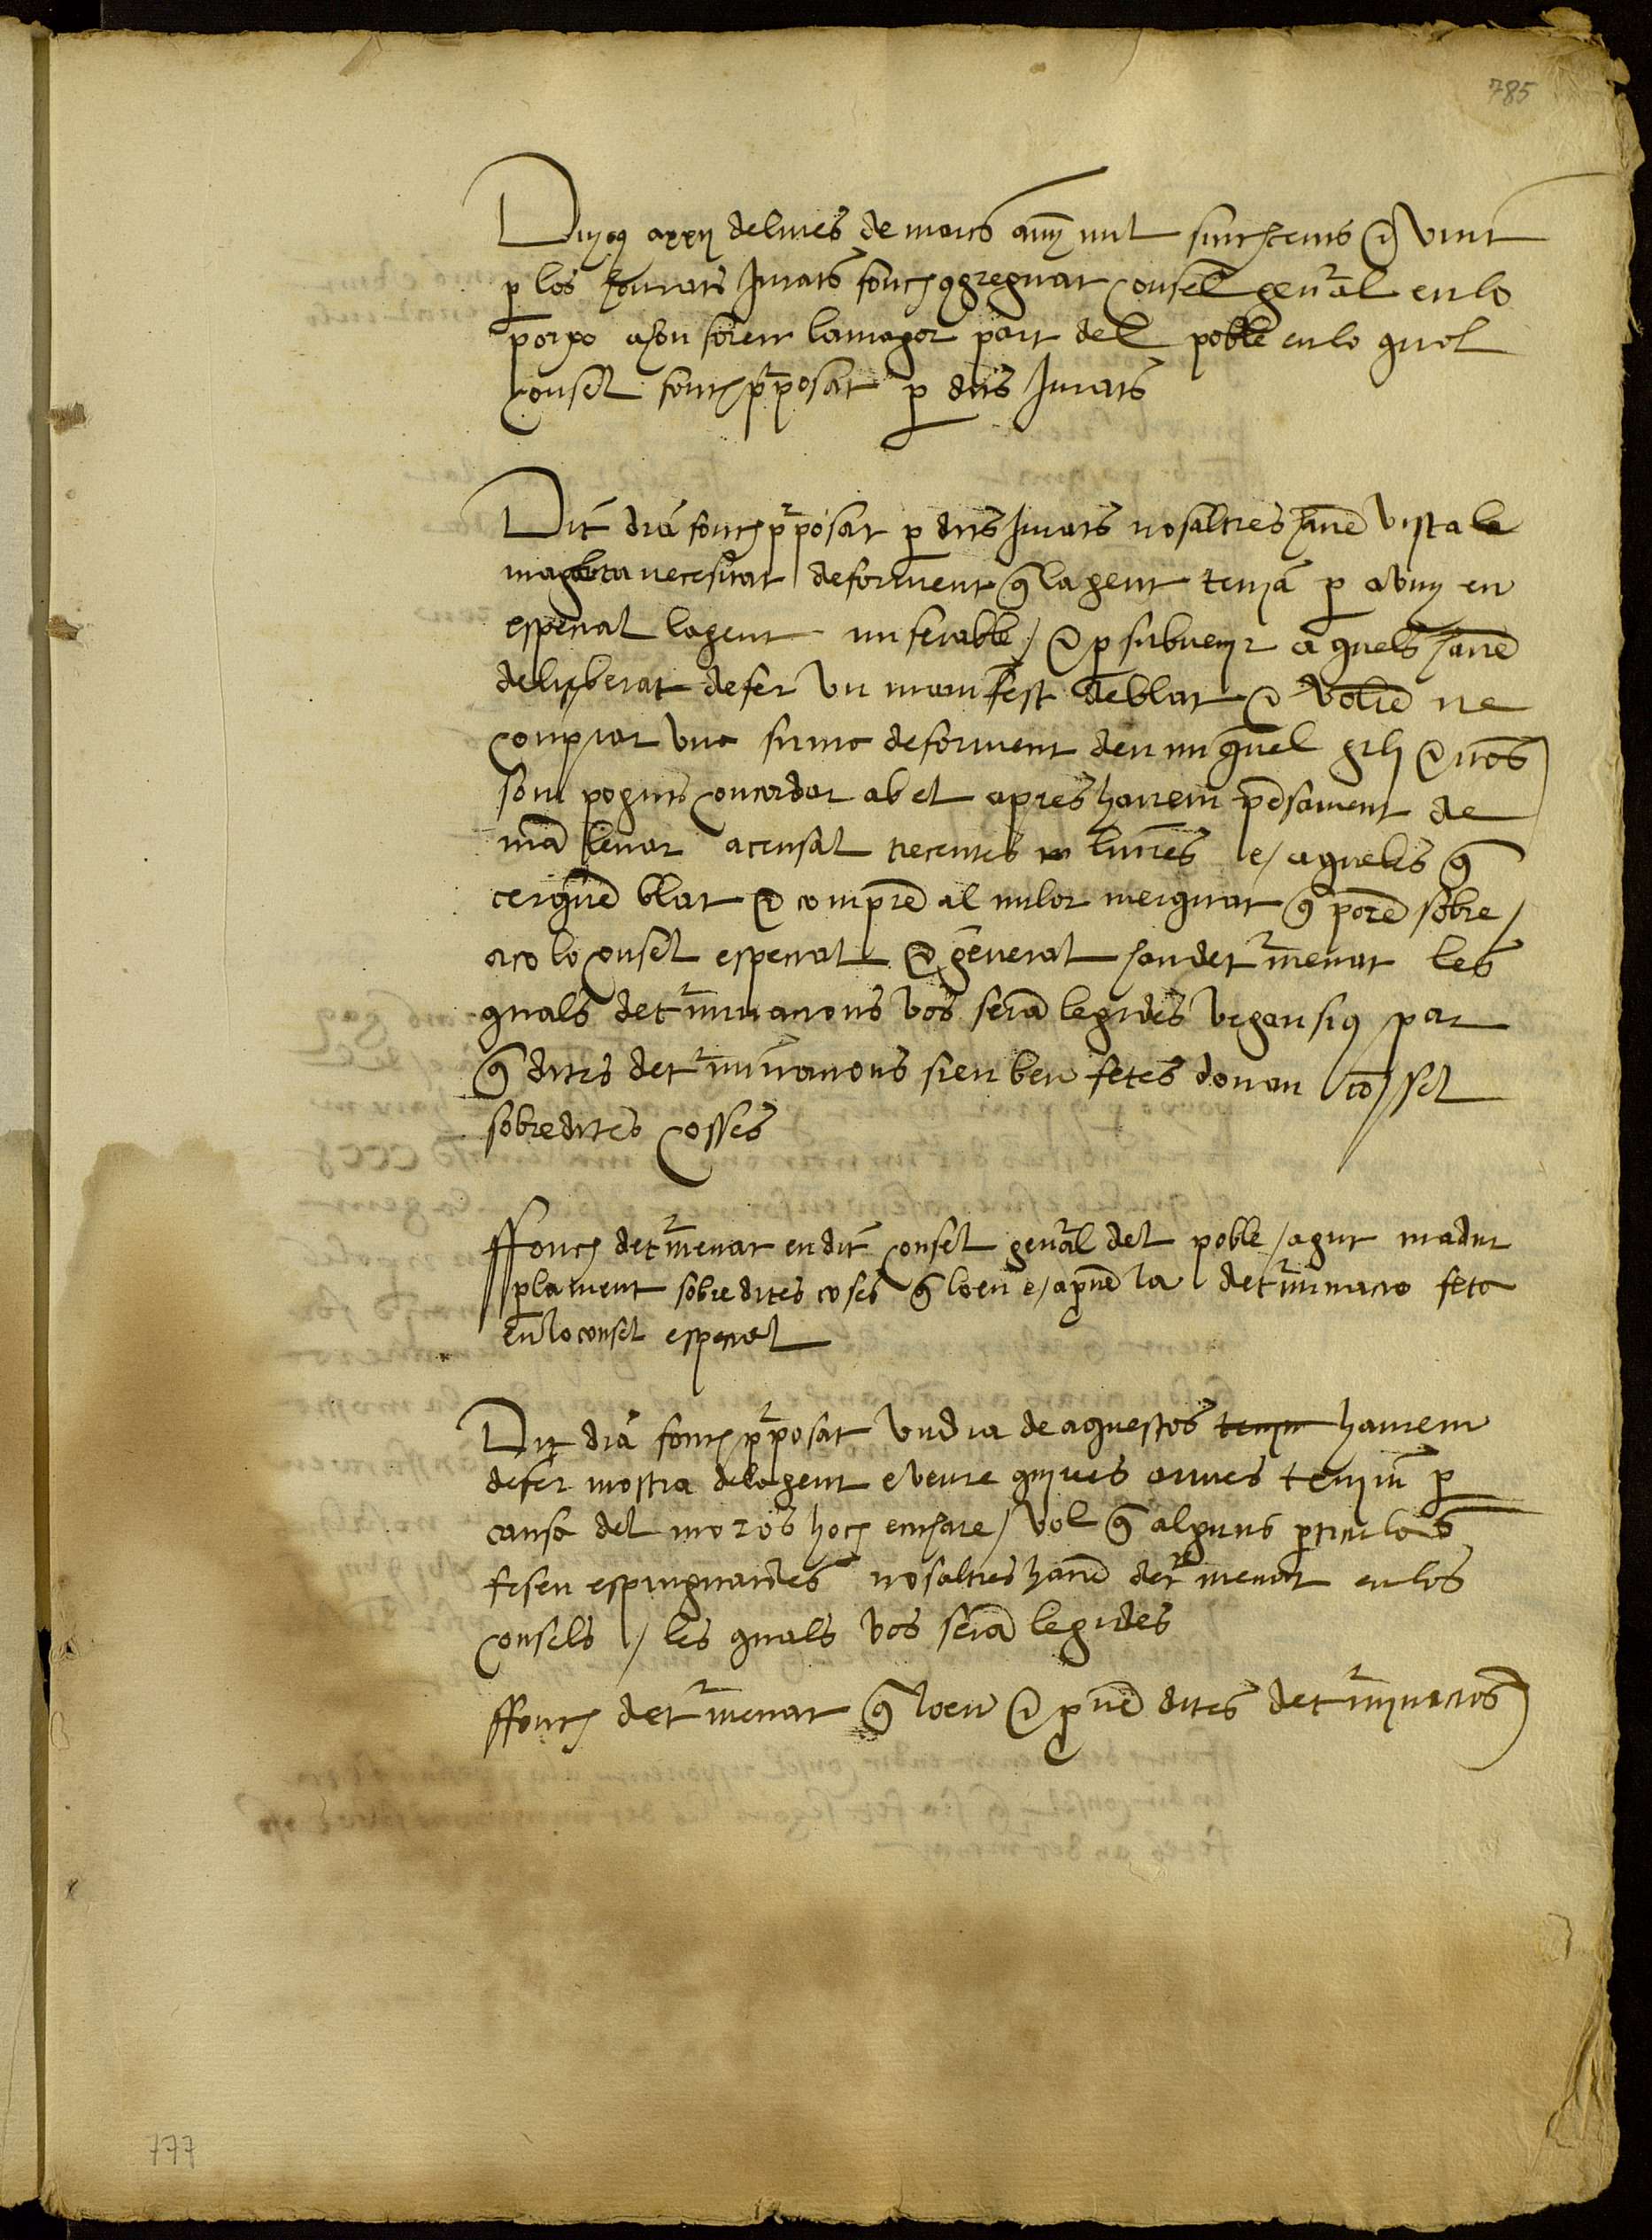 785
Dijous a xxij del mes de mars añy mil sinchcens & vint
p los honrats Jurats fonch 9gregat consell geñal en lo
porxo ahon foren la major part dell poble en lo qual
consel fonch pposat p dits Jurats
Dit dia fonch pposat p dits Jurats nosaltres hauē vista la
necesitat de forment q̄ la gent tenjā p avuy en
especial la gent miserable / & p subuenjr a quels hauē
deljberat de fer vn manifest de blat & voliē ne
comprar vna suma de forment den miquel gili & nos
som poguts concordar ab el apres hauem pēsament de
mālleuar a censal trecentes liures e / aqueles q̄
cerquē blat & comprē al milor merquat q̄ porē sobre /
aco lo consel especial & general han detrmenat les
quals detrminacions vos serā legides vegan sius par
q̄ dites detrminacions sien ben fetes donan cōsel
sobre dites cosses
ffonch detrmenat en dit consel geñal del poble / agut madur
plament sobre dites coses q̄ loen e / apruē la detrminacio feta
en lo consel especial
Dit dia fonch pposat vn dia de aquestos tenjm hauem
de fer mostra de la gent e veure quines armes tenim p
causa del moros hoch enchare / vol q̄ alguns pticulas
fesen espinguardes nosaltres hauē detrmenat en los
consels / les quals vos serā legides
ffonch detrmenat q̄ loen & pruē dites detrminacios
777